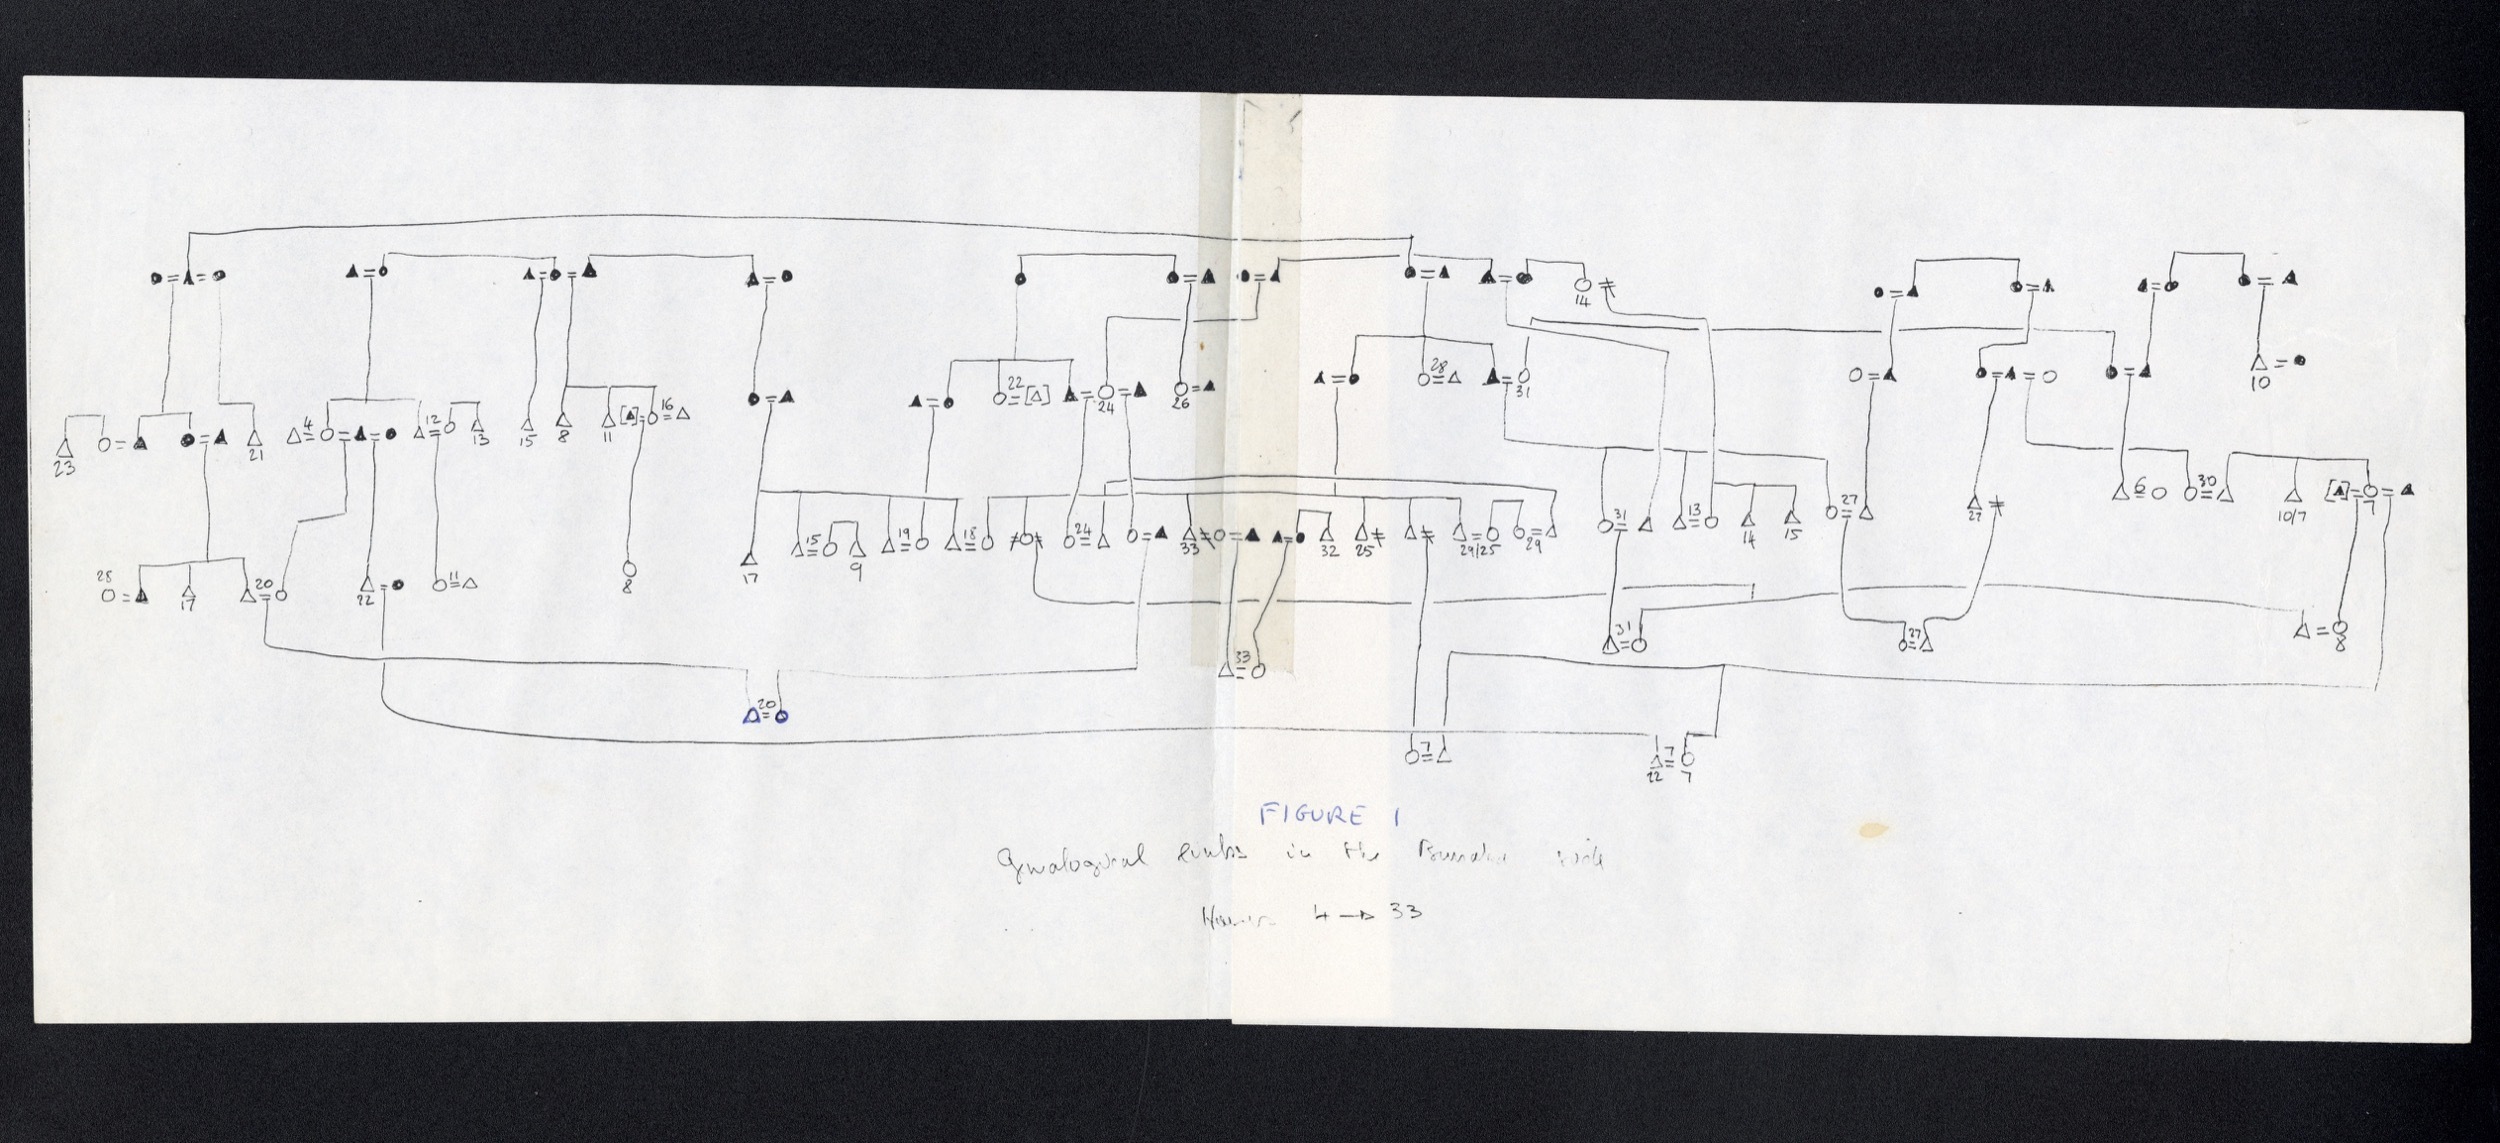 14
28
31
10
22
24
26
4
12
16
23
21
13
15
8
11
6
30
7
10/7
27
27
31
13
14
15
17
15
9
19
18
24
33
32
25
29/25
29
28
17
20
22
11
8
31
27
8
33
20
7
7
22
7
FIGURE 1
in the
4 → 33